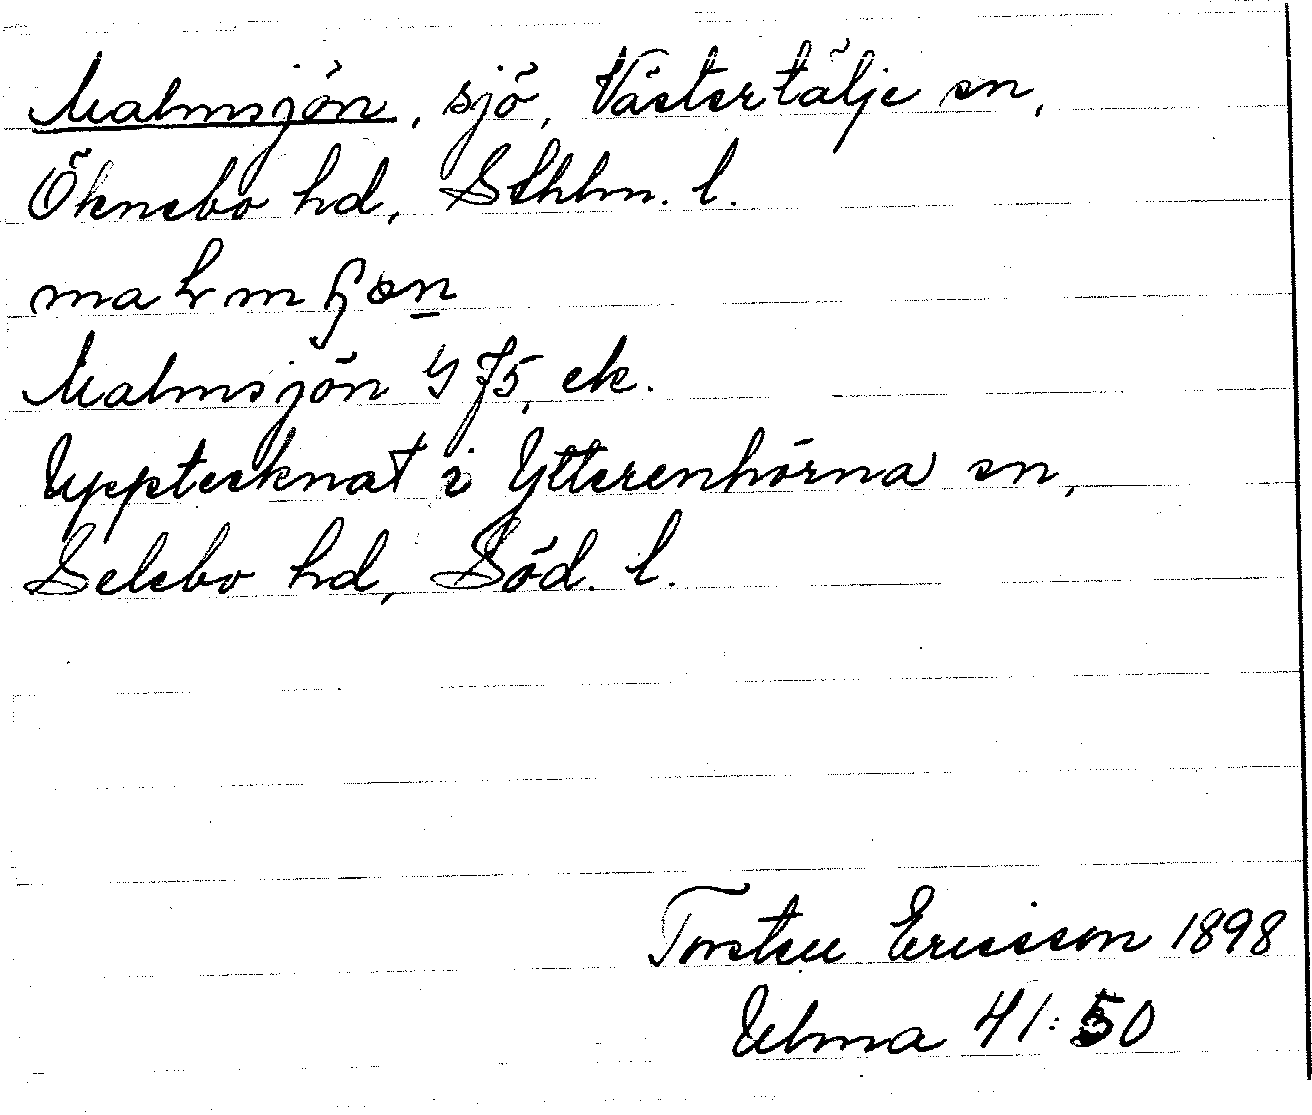 Malmsjön, sjö, Västertälje sn,
Öknebo hd, Sthlm. l.
Malmsjön G 75, ek.
Upptecknat i Ytterenhörna sn,
Selebo hd, Söd. l.
Torsten Ericsson 1898
Ulma 41:50